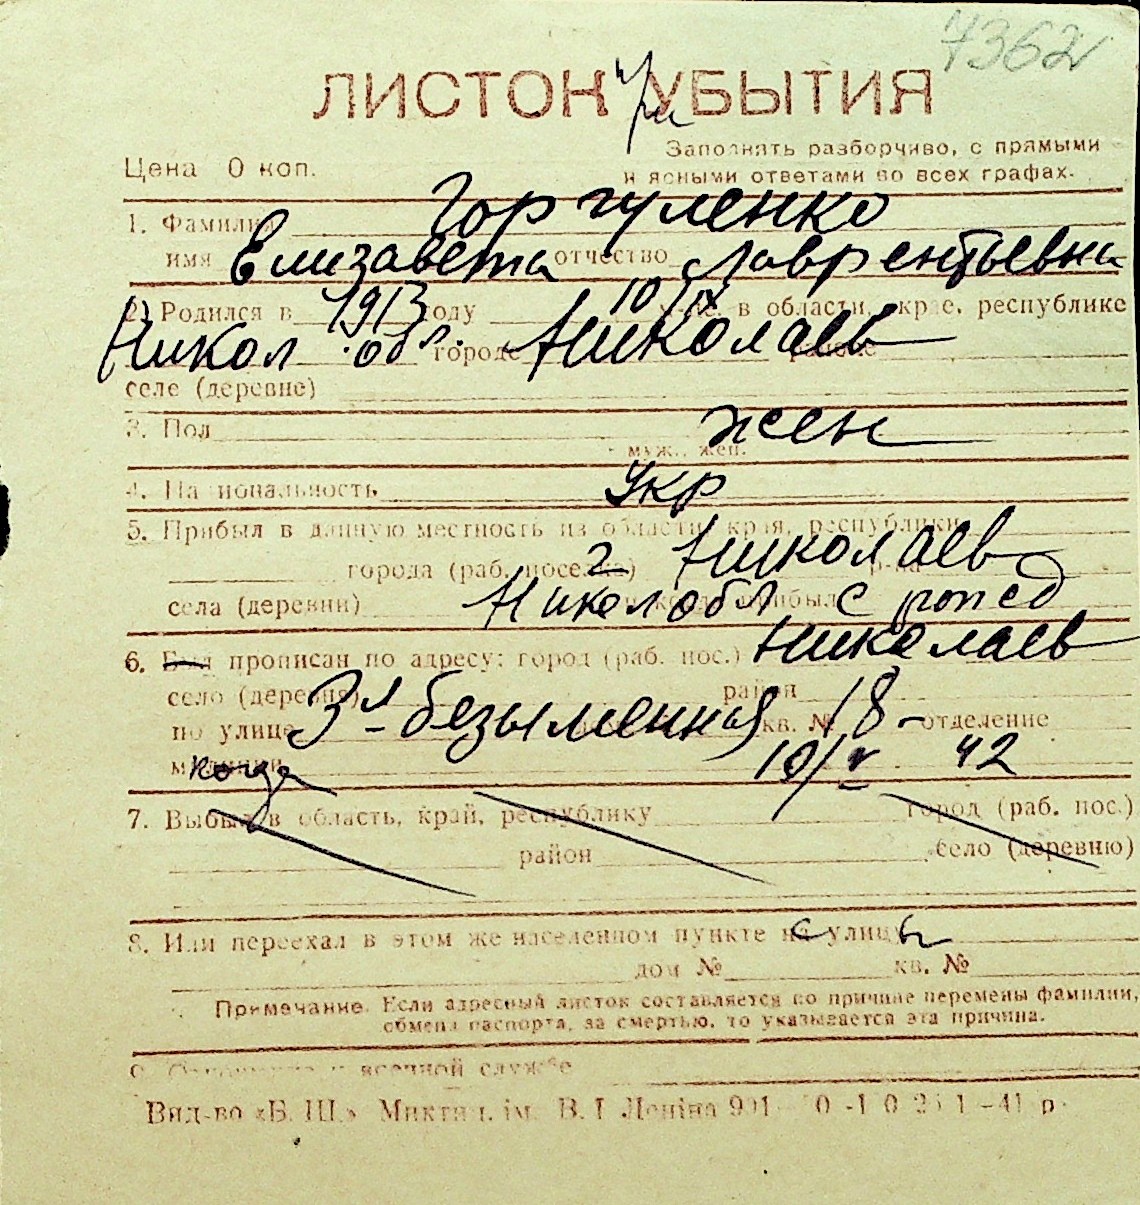 7362
ЛИСТОК при УБЫТИЯ
Цена 0 коп.
Заполнять разборчиво, с прямыми
и ясными ответами во всех графах.
1. Фамилия Горгуленко
имя Елизавета отчество Лаврентьевна
2. Родился в 1913 году 10/IX в области, крае, республике
Никол. обл. городе Николаев районе
селе (деревне)
3. Пол жен
муж., жен.
4. Национальность укр
5. Прибыл в данную местность из области, края, республики
города (раб. поселка) г. Николаев р-на
села (деревни) Никол обл прибыл с рожд
6. Был прописан по адресу: город (раб. пос.) Николаев
село (деревня) район
по улице 3я-безыменная кв. № 18 - отделение
милиции когда 10/V 42
7. Выбыл в область, край, республику город (раб. пос.)
район село (деревню)
8. Или переехал в этом же населенном пункте с улицы
дом № кв. №
Примечание. Если адресный листок составляется по причине перемены фамилии,
обмена паспорта, за смертью, то указывается эта причина.
9. военной службе
Вид-во «Б. Ш.» ім. В. І. Леніна